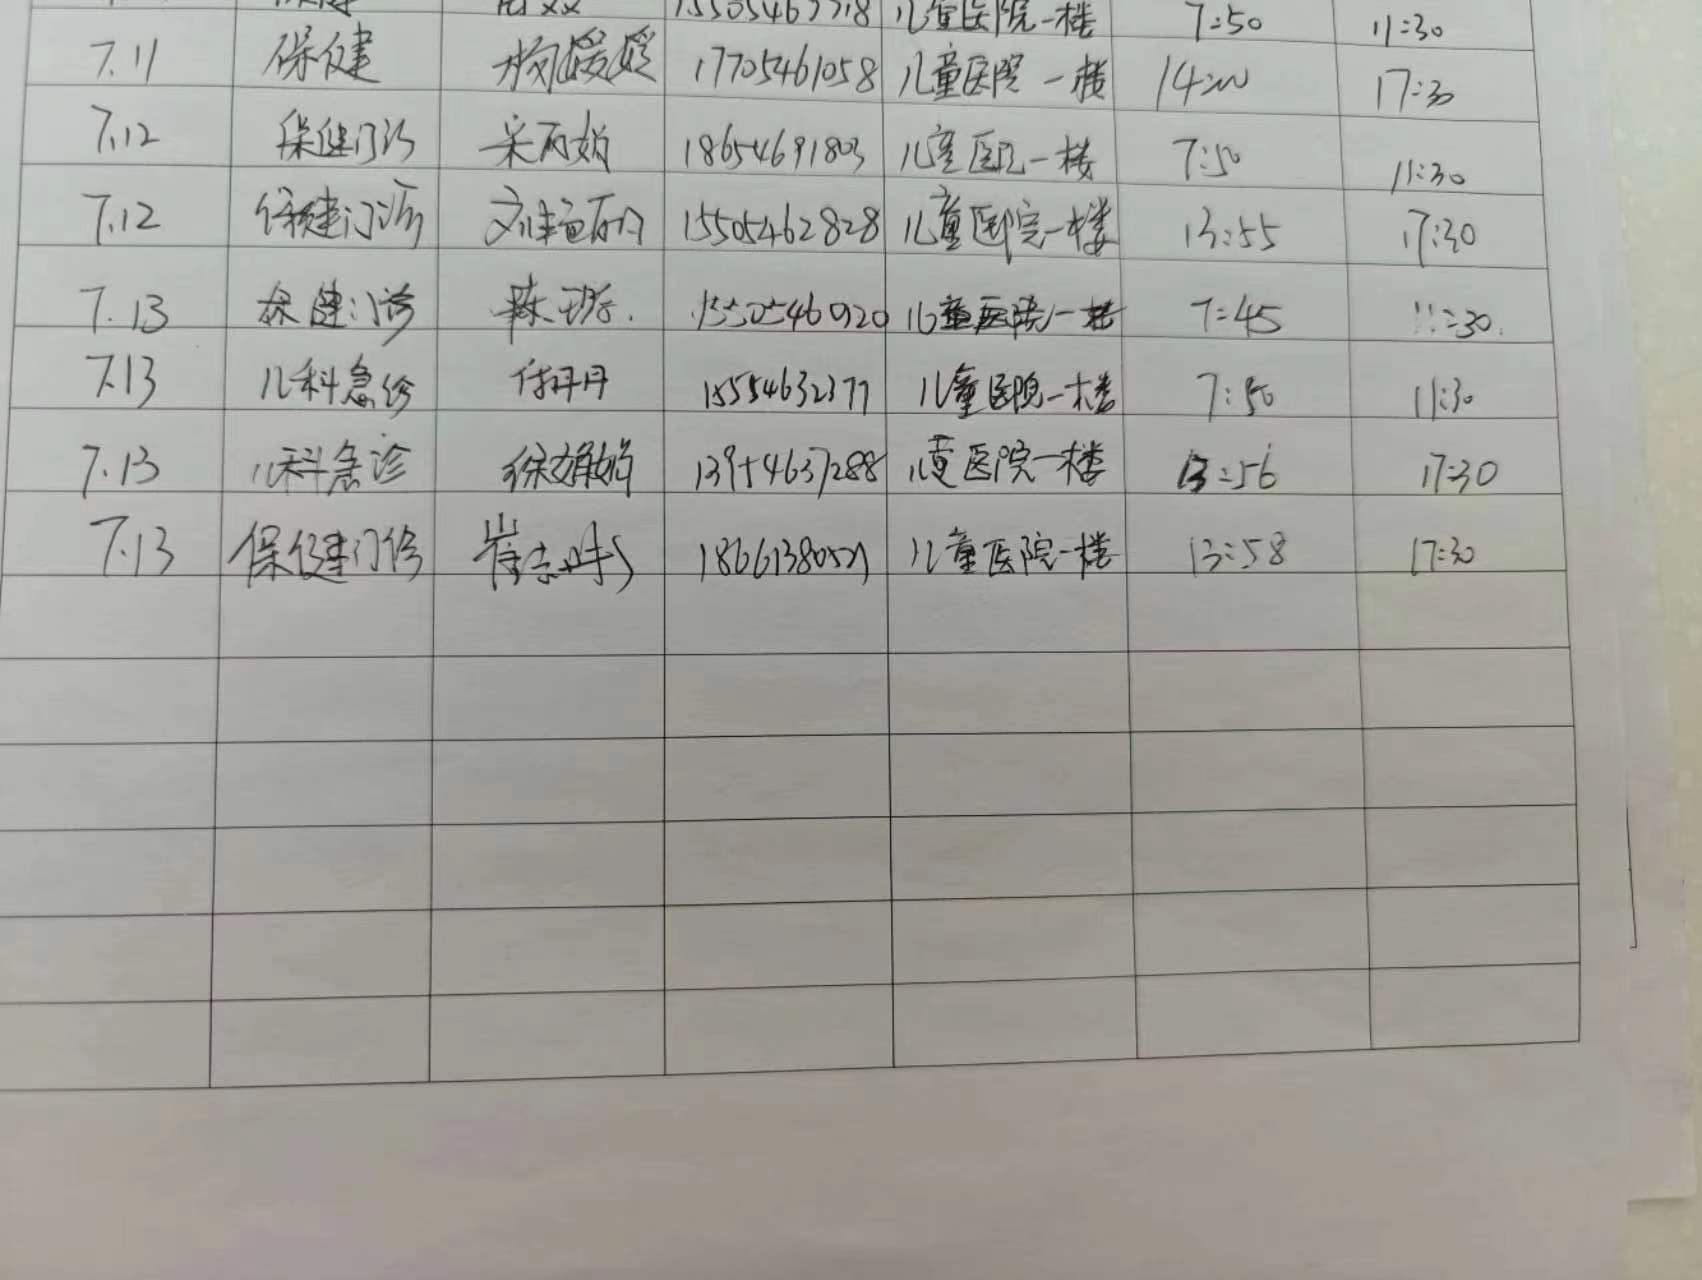 7:50 11:30
7.11 保健 杨媛媛 17705461058 儿童医院一楼 14:00 17:30
7.12 保健门诊 18654691803 儿童医院一楼 7:50 11:30
7.12 保健门诊 15505462828 儿童医院一楼 13:55 17:30
7.13 保健门诊 陈 儿童医院一楼 7:45 11:30
7.13 儿科急诊 付丹丹 15554632377 儿童医院一楼 7:50 11:30
7.13 儿科急诊 徐娟娟 13954637288 儿童医院一楼 13:56 17:30
7.13 保健门诊 崔 18661380521 儿童医院一楼 13:58 17:30